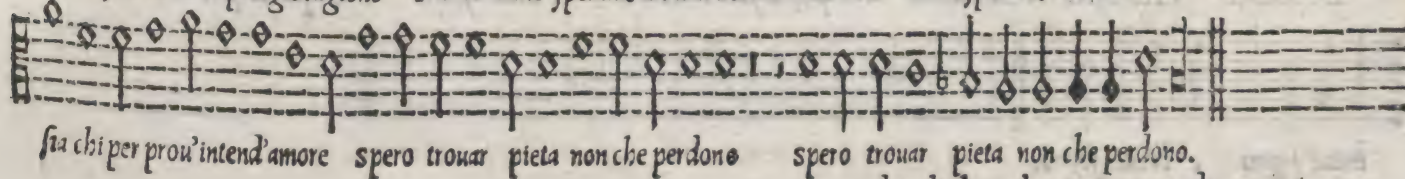 sia chi per prou'intend'amore spero trouar pieta non che perdono spero trouar pieta non che perdono.